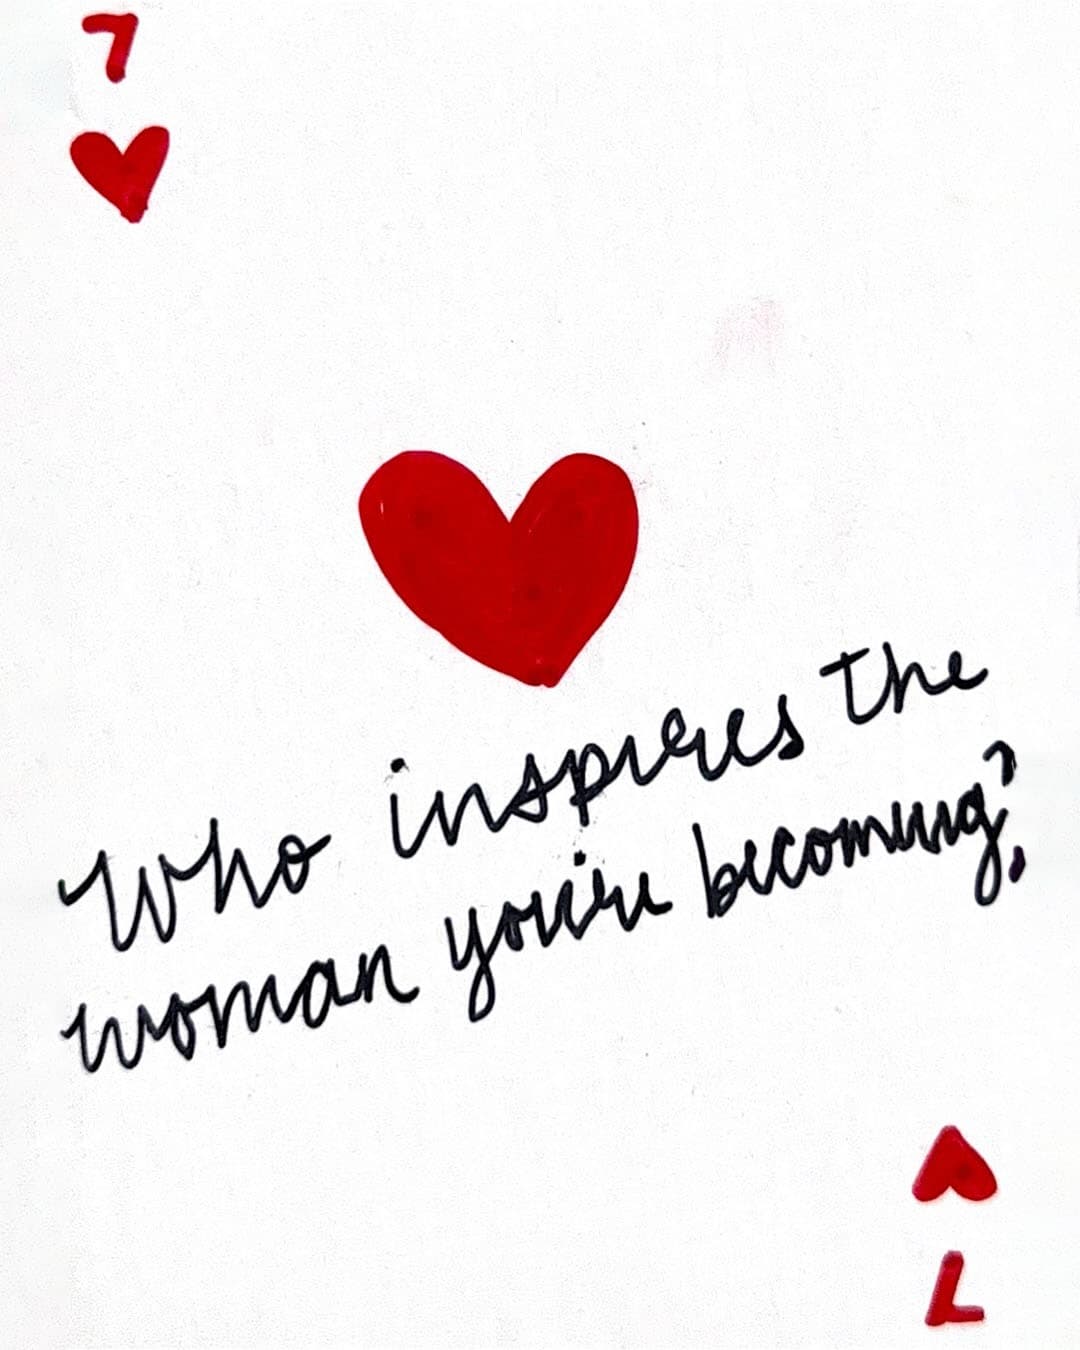 7
Who inspires the
woman you're becoming?
7